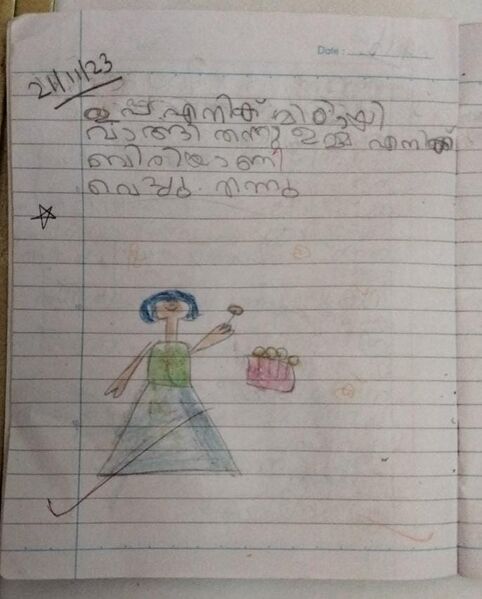 Date :
21/11/23
ഉപ്പ എനിക് മിഠായി
വാങ്ങി തന്നു ഉമ്മ എനിക്ക്
ബിരിയാണി
വെച്ചു തന്നു